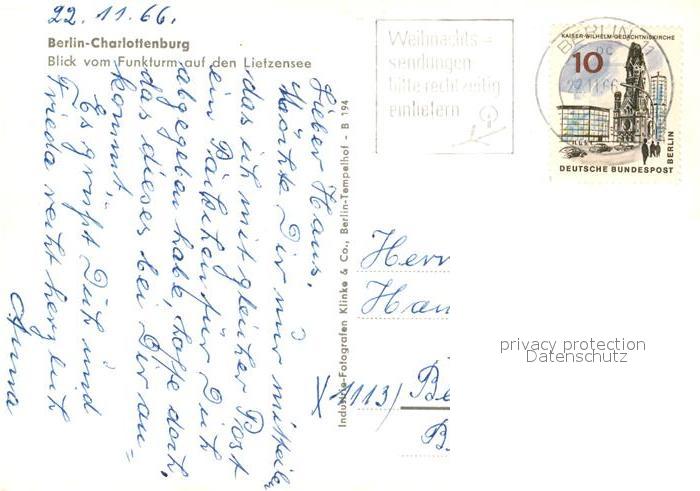 22.11.66.
Berlin-Charlottenburg
Blick vom Funkturm auf den Lietzensee
Lieber Hans.
Möchte Dir nur mitteilen
das ich mit gleicher Post
ein Päckchen für Dich
abgegeben habe hoffe doch,
das dieses bei Dir an=
kommt.
Es grüßt Dich und
Frieda recht herzlich
Anna
Industrie-Fotografen Klinke & Co., Berlin-Tempelhof - B 194
Weihnachts=
sendungen
bitte recht zeitig
einliefern
BERLIN 11
22.11.66
KAISER-WILHELM-GEDÄCHTNISKIRCHE
10
DEUTSCHE BUNDESPOST
BERLIN
Herr
Han
X 1113) Be
B
privacy protection
Datenschutz